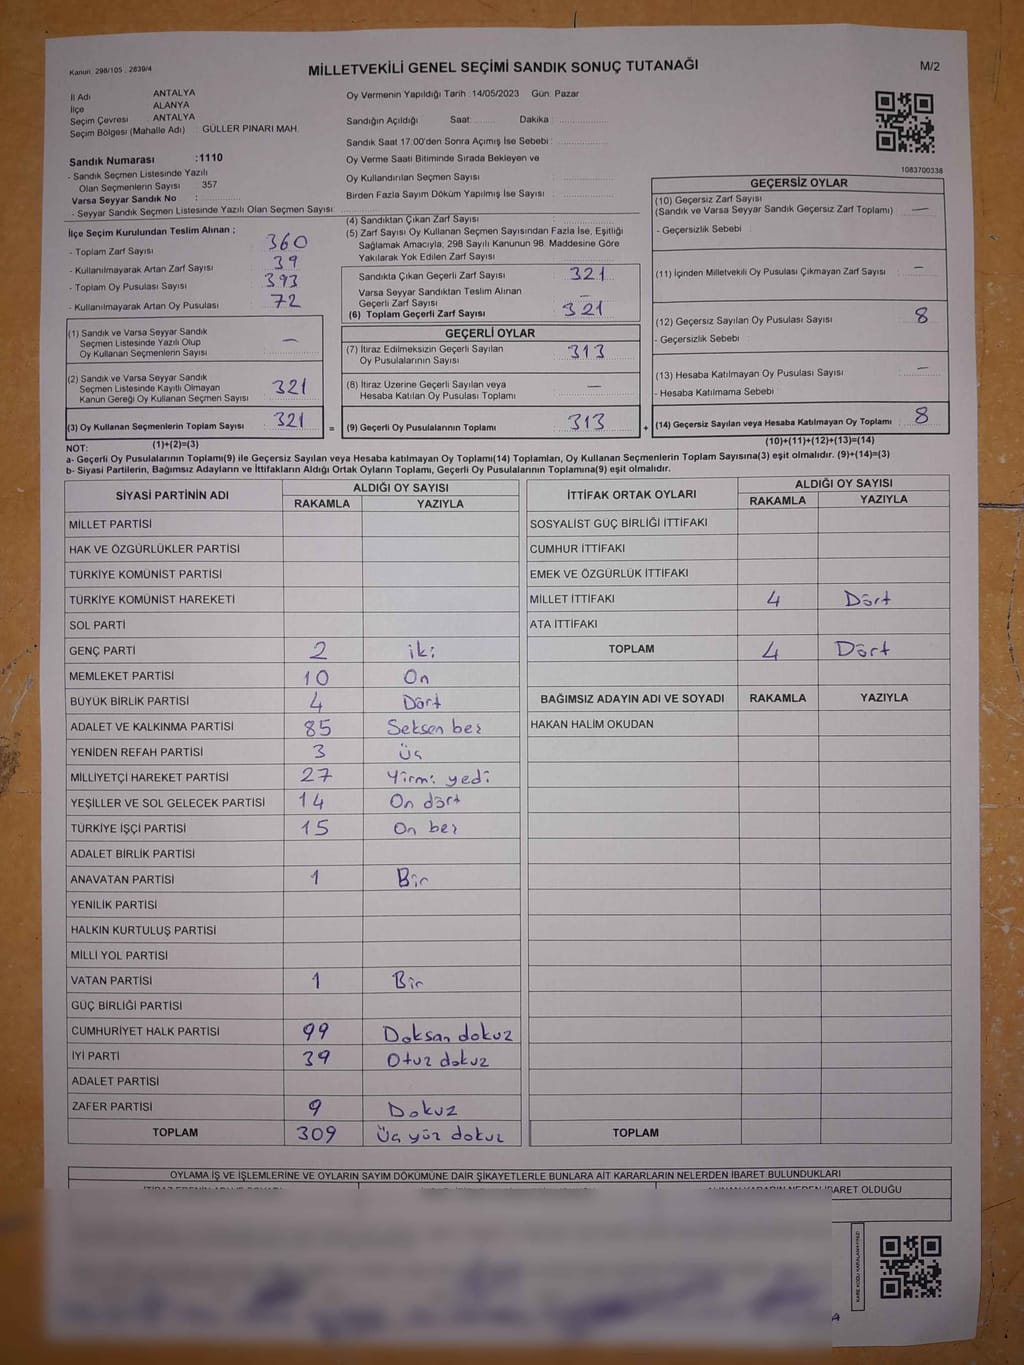 Kanun: 298/105 , 2839/4
MİLLETVEKİLİ GENEL SEÇİMİ SANDIK SONUÇ TUTANAĞI
M/2
İl Adı ANTALYA
İlçe ALANYA
Seçim Çevresi : ANTALYA
Seçim Bölgesi (Mahalle Adı) : GÜLLER PINARI MAH.
Oy Vermenin Yapıldığı Tarih : 14/05/2023 Gün: Pazar
Sandığın Açıldığı Saat: Dakika :
Sandık Saat 17:00'den Sonra Açımış İse Sebebi :
Sandık Numarası :1110
- Sandık Seçmen Listesinde Yazılı
Olan Seçmenlerin Sayısı : 357
Varsa Seyyar Sandık No :
- Seyyar Sandık Seçmen Listesinde Yazılı Olan Seçmen Sayısı :
Oy Verme Saati Bitiminde Sırada Bekleyen ve
Oy Kullandırılan Seçmen Sayısı :
Birden Fazla Sayım Döküm Yapılmış İse Sayısı :
1083700338
İlçe Seçim Kurulundan Teslim Alınan ;
- Toplam Zarf Sayısı : 360
- Kullanılmayarak Artan Zarf Sayısı : 39
- Toplam Oy Pusulası Sayısı : 393
- Kullanılmayarak Artan Oy Pusulası : 72
(1) Sandık ve Varsa Seyyar Sandık
Seçmen Listesinde Yazılı Olup
Oy Kullanan Seçmenlerin Sayısı : —
(2) Sandık ve Varsa Seyyar Sandık
Seçmen Listesinde Kayıtlı Olmayan
Kanun Gereği Oy Kullanan Seçmen Sayısı : 321
(3) Oy Kullanan Seçmenlerin Toplam Sayısı : 321
(4) Sandıktan Çıkan Zarf Sayısı :
(5) Zarf Sayısı Oy Kullanan Seçmen Sayısından Fazla İse, Eşitliği
Sağlamak Amacıyla, 298 Sayılı Kanunun 98. Maddesine Göre
Yakılarak Yok Edilen Zarf Sayısı :
Sandıkta Çıkan Geçerli Zarf Sayısı : 321
Varsa Seyyar Sandıktan Teslim Alınan
Geçerli Zarf Sayısı : —
(6) Toplam Geçerli Zarf Sayısı : 321
GEÇERLİ OYLAR
(7) İtiraz Edilmeksizin Geçerli Sayılan
Oy Pusulalarının Sayısı : 313
(8) İtiraz Üzerine Geçerli Sayılan veya
Hesaba Katılan Oy Pusulası Toplamı : —
= (9) Geçerli Oy Pusulalarının Toplamı : 313
GEÇERSİZ OYLAR
(10) Geçersiz Zarf Sayısı
(Sandık ve Varsa Seyyar Sandık Geçersiz Zarf Toplamı) : —
- Geçersizlik Sebebi :
(11) İçinden Milletvekili Oy Pusulası Çıkmayan Zarf Sayısı : —
(12) Geçersiz Sayılan Oy Pusulası Sayısı : 8
- Geçersizlik Sebebi :
(13) Hesaba Katılmayan Oy Pusulası Sayısı : —
- Hesaba Katılmama Sebebi :
+ (14) Geçersiz Sayılan veya Hesaba Katılmayan Oy Toplamı : 8
NOT: (1)+(2)=(3)
(10)+(11)+(12)+(13)=(14)
a- Geçerli Oy Pusulalarının Toplamı(9) ile Geçersiz Sayılan veya Hesaba katılmayan Oy Toplamı(14) Toplamları, Oy Kullanan Seçmenlerin Toplam Sayısına(3) eşit olmalıdır. (9)+(14)=(3)
b- Siyasi Partilerin, Bağımsız Adayların ve İttifakların Aldığı Ortak Oyların Toplamı, Geçerli Oy Pusulalarının Toplamına(9) eşit olmalıdır.
SİYASİ PARTİNİN ADI
ALDIĞI OY SAYISI
RAKAMLA YAZIYLA
MİLLET PARTİSİ
HAK VE ÖZGÜRLÜKLER PARTİSİ
TÜRKİYE KOMÜNİST PARTİSİ
TÜRKİYE KOMÜNİST HAREKETİ
SOL PARTİ
GENÇ PARTİ 2 iki
MEMLEKET PARTİSİ 10 On
BÜYÜK BİRLİK PARTİSİ 4 Dört
ADALET VE KALKINMA PARTİSİ 85 Seksen beş
YENİDEN REFAH PARTİSİ 3 Üç
MİLLİYETÇİ HAREKET PARTİSİ 27 Yirmi yedi
YEŞİLLER VE SOL GELECEK PARTİSİ 14 On dört
TÜRKİYE İŞÇİ PARTİSİ 15 On beş
ADALET BİRLİK PARTİSİ
ANAVATAN PARTİSİ 1 Bir
YENİLİK PARTİSİ
HALKIN KURTULUŞ PARTİSİ
MİLLİ YOL PARTİSİ
VATAN PARTİSİ 1 Bir
GÜÇ BİRLİĞİ PARTİSİ
CUMHURİYET HALK PARTİSİ 99 Doksan dokuz
İYİ PARTİ 39 Otuz dokuz
ADALET PARTİSİ
ZAFER PARTİSİ 9 Dokuz
TOPLAM 309 Üç yüz dokuz
İTTİFAK ORTAK OYLARI
ALDIĞI OY SAYISI
RAKAMLA YAZIYLA
SOSYALİST GÜÇ BİRLİĞİ İTTİFAKI
CUMHUR İTTİFAKI
EMEK VE ÖZGÜRLÜK İTTİFAKI
MİLLET İTTİFAKI 4 Dört
ATA İTTİFAKI
TOPLAM 4 Dört
BAĞIMSIZ ADAYIN ADI VE SOYADI RAKAMLA YAZIYLA
HAKAN HALİM OKUDAN
TOPLAM
OYLAMA İŞ VE İŞLEMLERİNE VE OYLARIN SAYIM DÖKÜMÜNE DAİR ŞİKAYETLERLE BUNLARA AİT KARARLARIN NELERDEN İBARET BULUNDUKLARI
ALINAN KARARIN NEDEN İBARET OLDUĞU